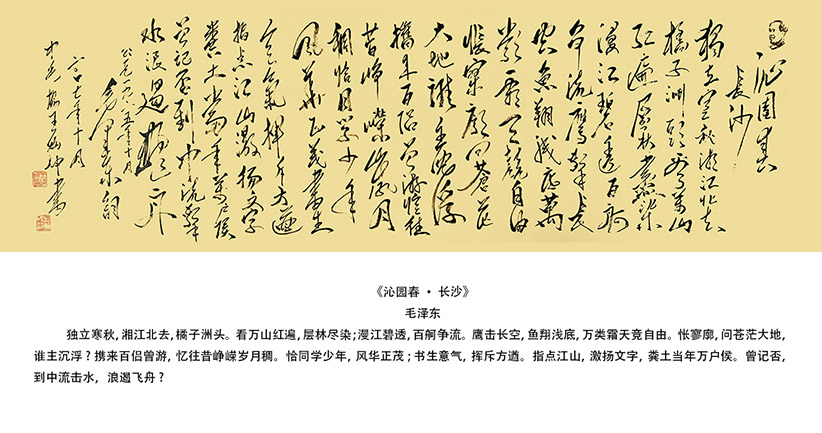 沁园春
长沙
独立寒秋湘江北去
橘子洲头看万山
红遍层林尽染
漫江碧透百舸
争流鹰击长
空鱼翔浅底万
类霜天竞自由
怅寥廓问苍茫
大地谁主沉浮
携来百侣曾游忆往
昔峥嵘岁月
稠恰同学少年
风华正茂书生
意气挥斥方遒
指点江山激扬文字
粪土当年万户侯
曾记否到中流击
水浪遏飞舟
《沁园春 · 长沙》
毛泽东
独立寒秋, 湘江北去, 橘子洲头。看万山红遍, 层林尽染; 漫江碧透, 百舸争流。鹰击长空, 鱼翔浅底, 万类霜天竞自由。怅寥廓, 问苍茫大地,
谁主沉浮？携来百侣曾游, 忆往昔峥嵘岁月稠。恰同学少年, 风华正茂；书生意气, 挥斥方遒。指点江山, 激扬文字, 粪土当年万户侯。曾记否,
到中流击水, 浪遏飞舟？